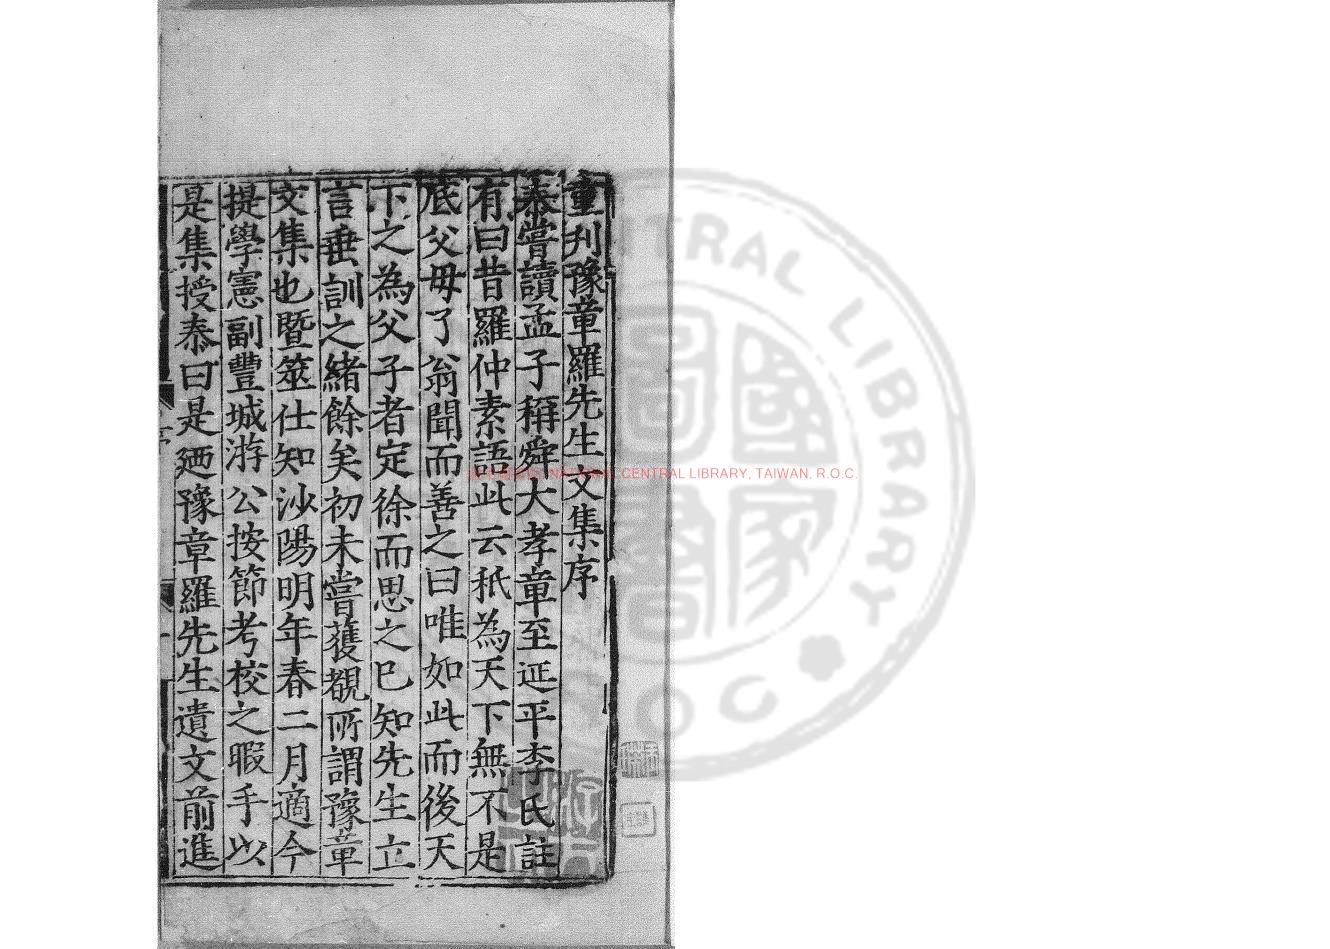 重刋豫章羅先生文集序
泰嘗讀孟子稱舜大孝章至延平李氏註
有曰昔羅仲素語此云秖為天下無不是
底父毋了翁聞而善之曰唯如此而後天
下之為父子者定徐而思之巳知先生立
言垂訓之緒餘矣初未嘗蒦覩所謂豫章
文集也暨筮仕知沙陽明年春二月適今
提學憲副豐城游公按節考校之暇手以
是集授泰曰是廼豫章羅先生遺文前進
NATIONAL CENTRAL LIBRARY, TAIWAN, R.O.C.